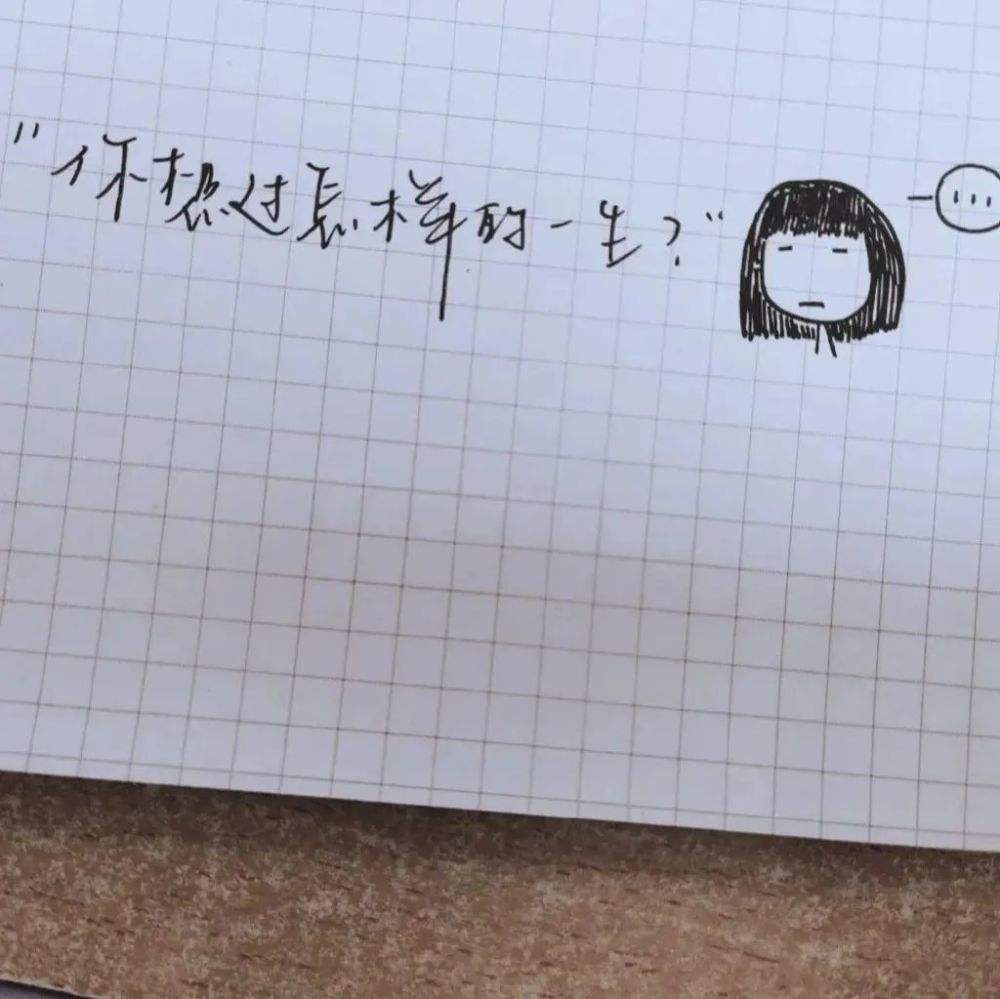 "你想过怎样的一生?" ...